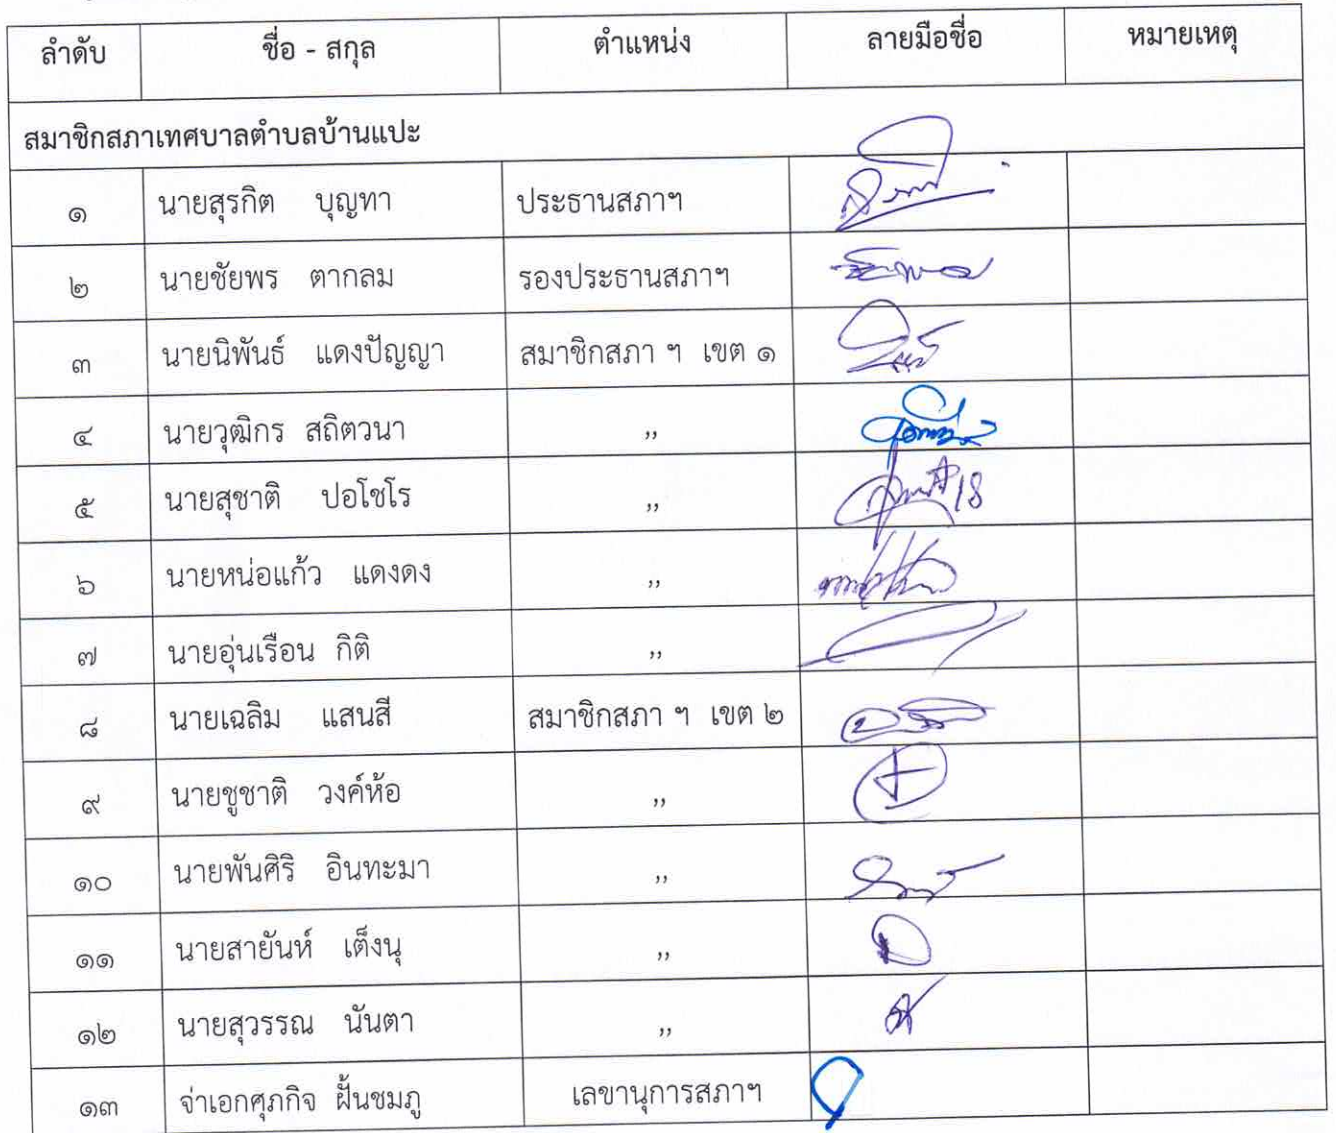 ลำดับ ชื่อ - สกุล ตำแหน่ง ลายมือชื่อ หมายเหตุ
สมาชิกสภาเทศบาลตำบลบ้านแปะ
๑ นายสุรกิต บุญทา ประธานสภาฯ
๒ นายชัยพร ตากลม รองประธานสภาฯ
๓ นายนิพันธ์ แดงปัญญา สมาชิกสภา ฯ เขต ๑
๔ นายวุฒิกร สถิตวนา ,,
๕ นายสุชาติ ปอโชโร ,, 18
๖ นายหน่อแก้ว แดงดง ,,
๗ นายอุ่นเรือน กิติ ,,
๘ นายเฉลิม แสนสี สมาชิกสภา ฯ เขต ๒
๙ นายชูชาติ วงค์ห้อ ,,
๑๐ นายพันศิริ อินทะมา ,,
๑๑ นายสายันห์ เต็งนุ ,,
๑๒ นายสุวรรณ นันตา ,,
๑๓ จ่าเอกศุภกิจ ฝั้นชมภู เลขานุการสภาฯ